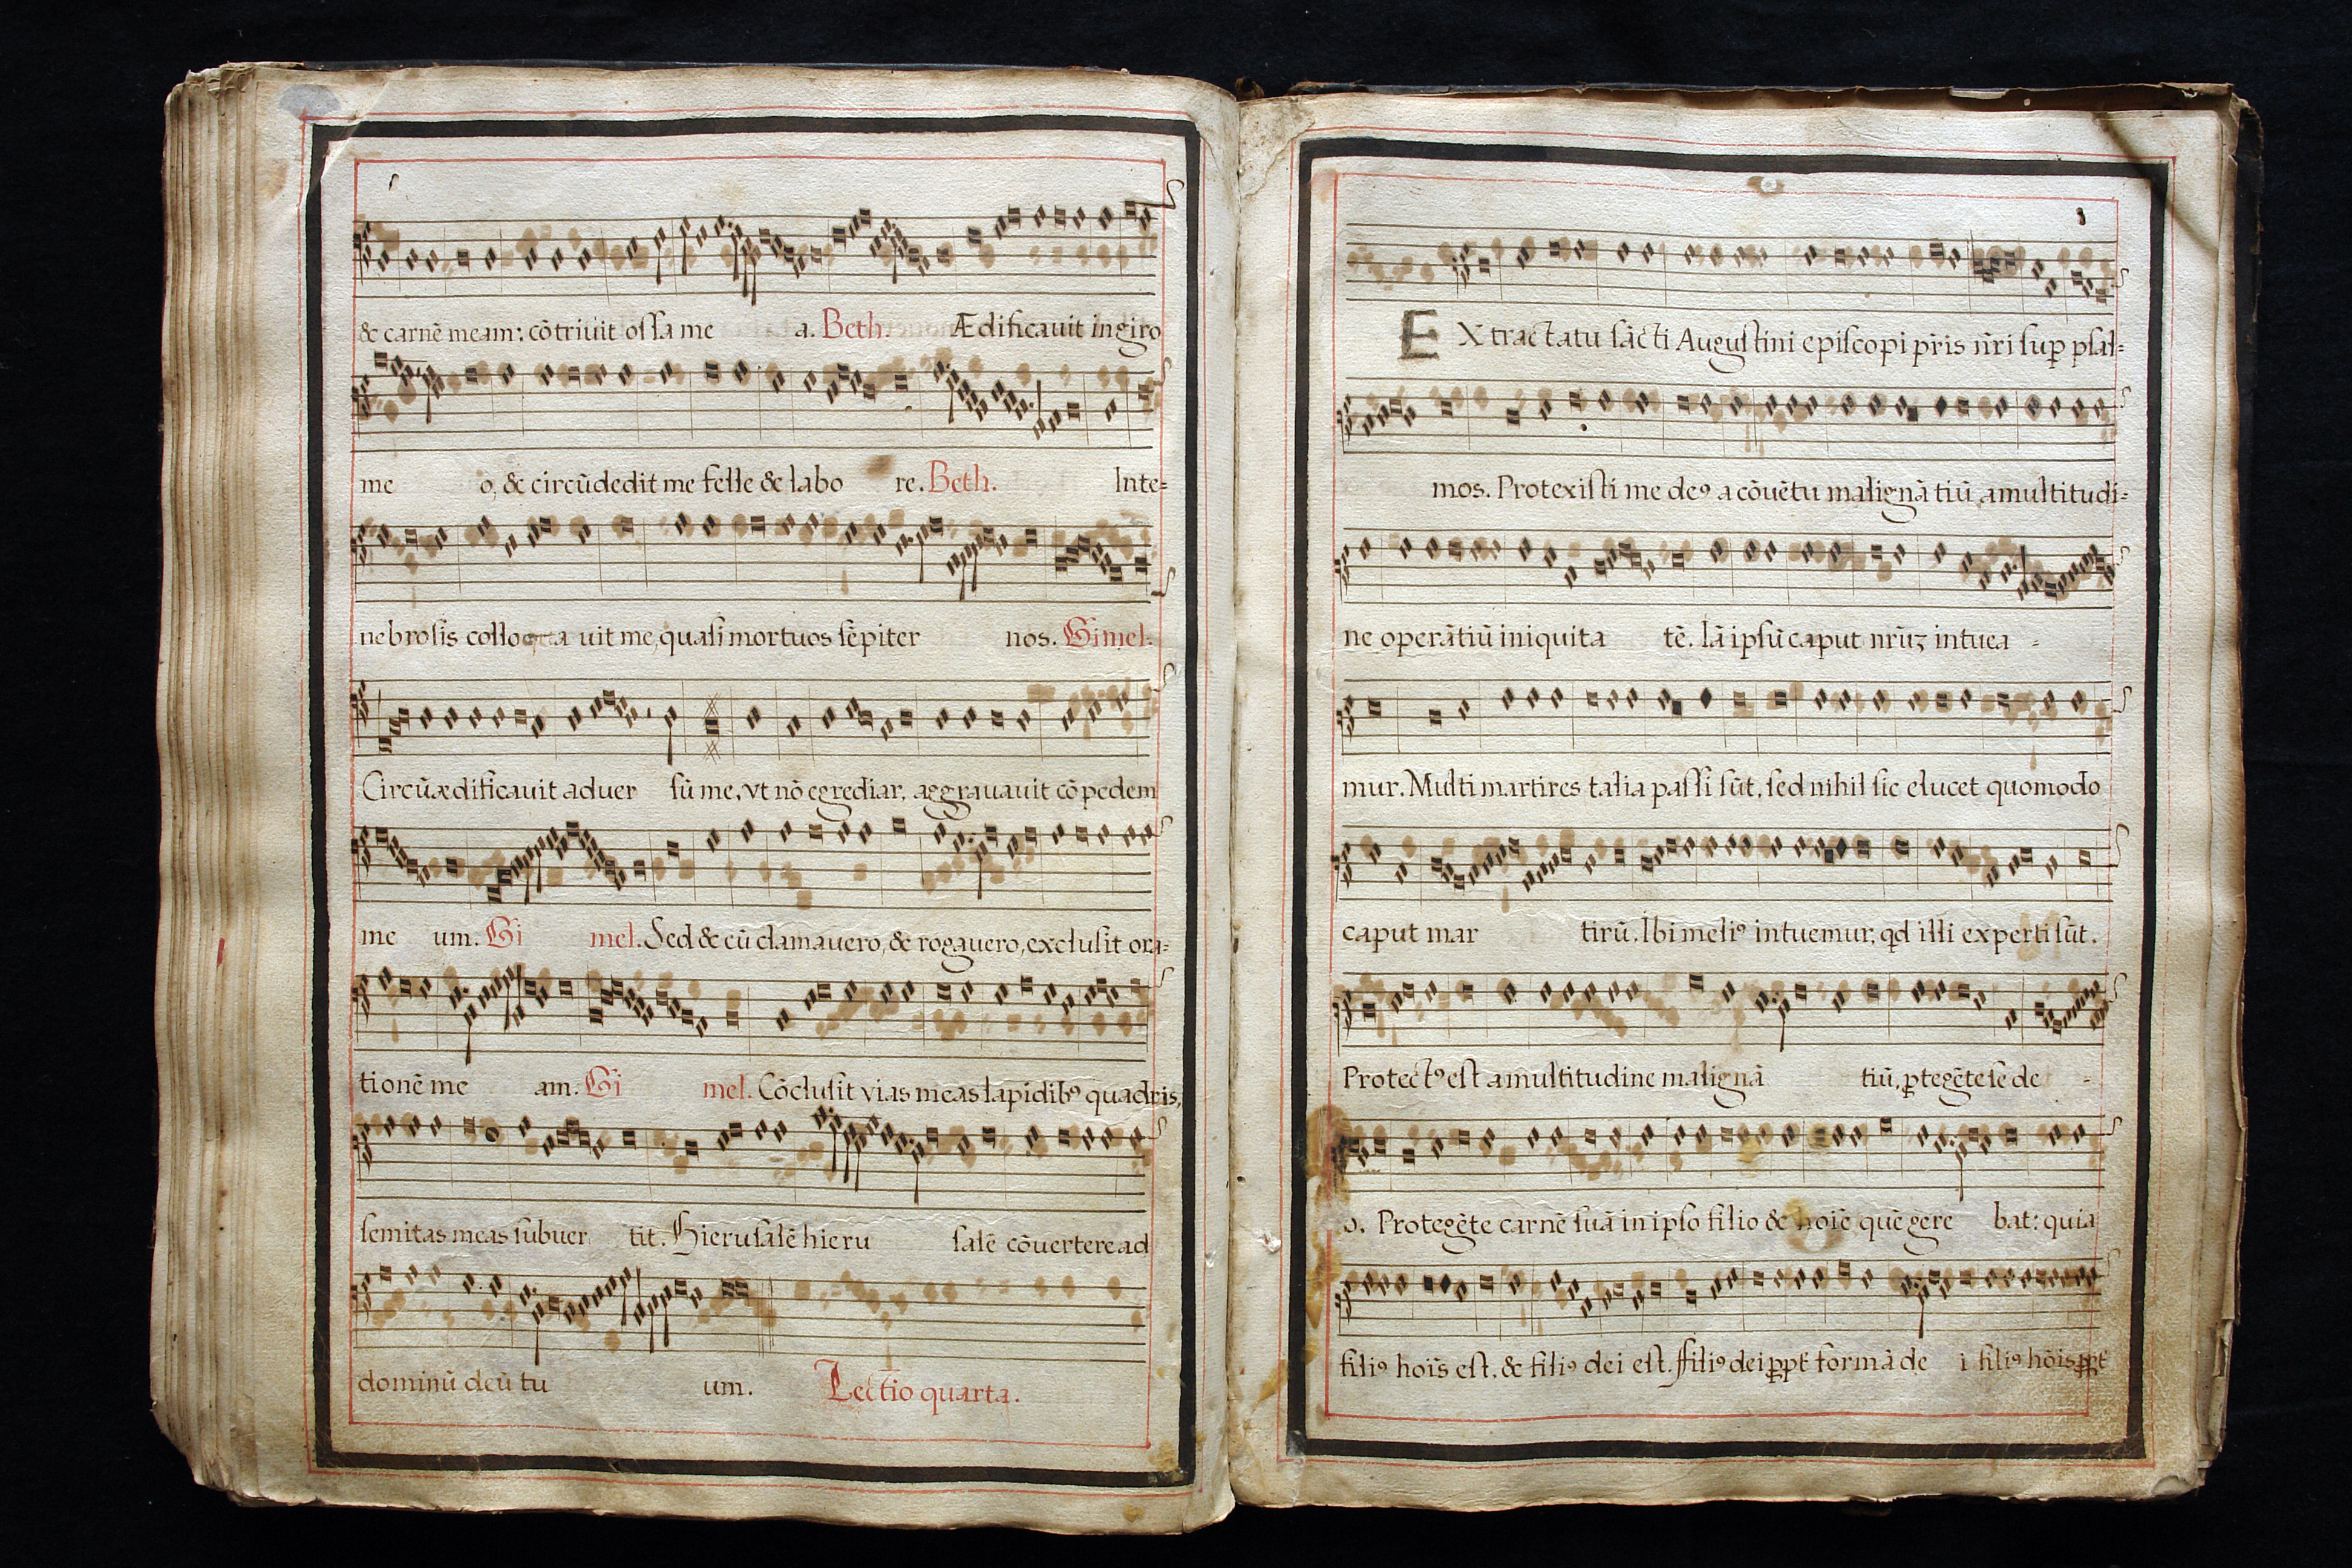 & carnē meam: cōtriuit ossa me a. Beth. Ædificauit in giro
me o, & circūdedit me felle & labo re. Beth. Inte=
nebrosis colloca uit me, quasi mortuos sēpiter nos. Gimel.
Circūædificauit aduer sū me, vt nō egrediar, aggrauauit cōpedem
me um. Gi mel. Sed & cū clamauero, & rogauero, exclusit ora=
tionē me am. Gi mel. Cōclusit vias meas lapidibꝰ quadris,
semitas meas subuer tit. Hierusalē hieru salē cōuertere ad
dominū deū tu um. Lectio quarta.
EX tractatu sācti Augustini episcopi p̄ris n̄ri sup̱ psal=
mos. Protexisti me deꝰ a cōuētu malignātiū, a multitudi=
ne operātiū iniquita tē. Iā ipsū caput nr̄uz intuea -
mur. Multi martires talia passi sūt, sed nihil sic elucet quomodo
caput mar tirū. Ibi meliꝰ intuemur, qd illi experti sūt.
Protectꝰ est a multitudine malignā tiū, ꝓtegēte se de -
o. Protegēte carnē suā in ipso filio & hoīe quē gere bat: quia
filiꝰ hoīs est, & filiꝰ dei est. ffiliꝰ dei ꝓpt̄ formā de i filiꝰ hōis ꝓpt̄